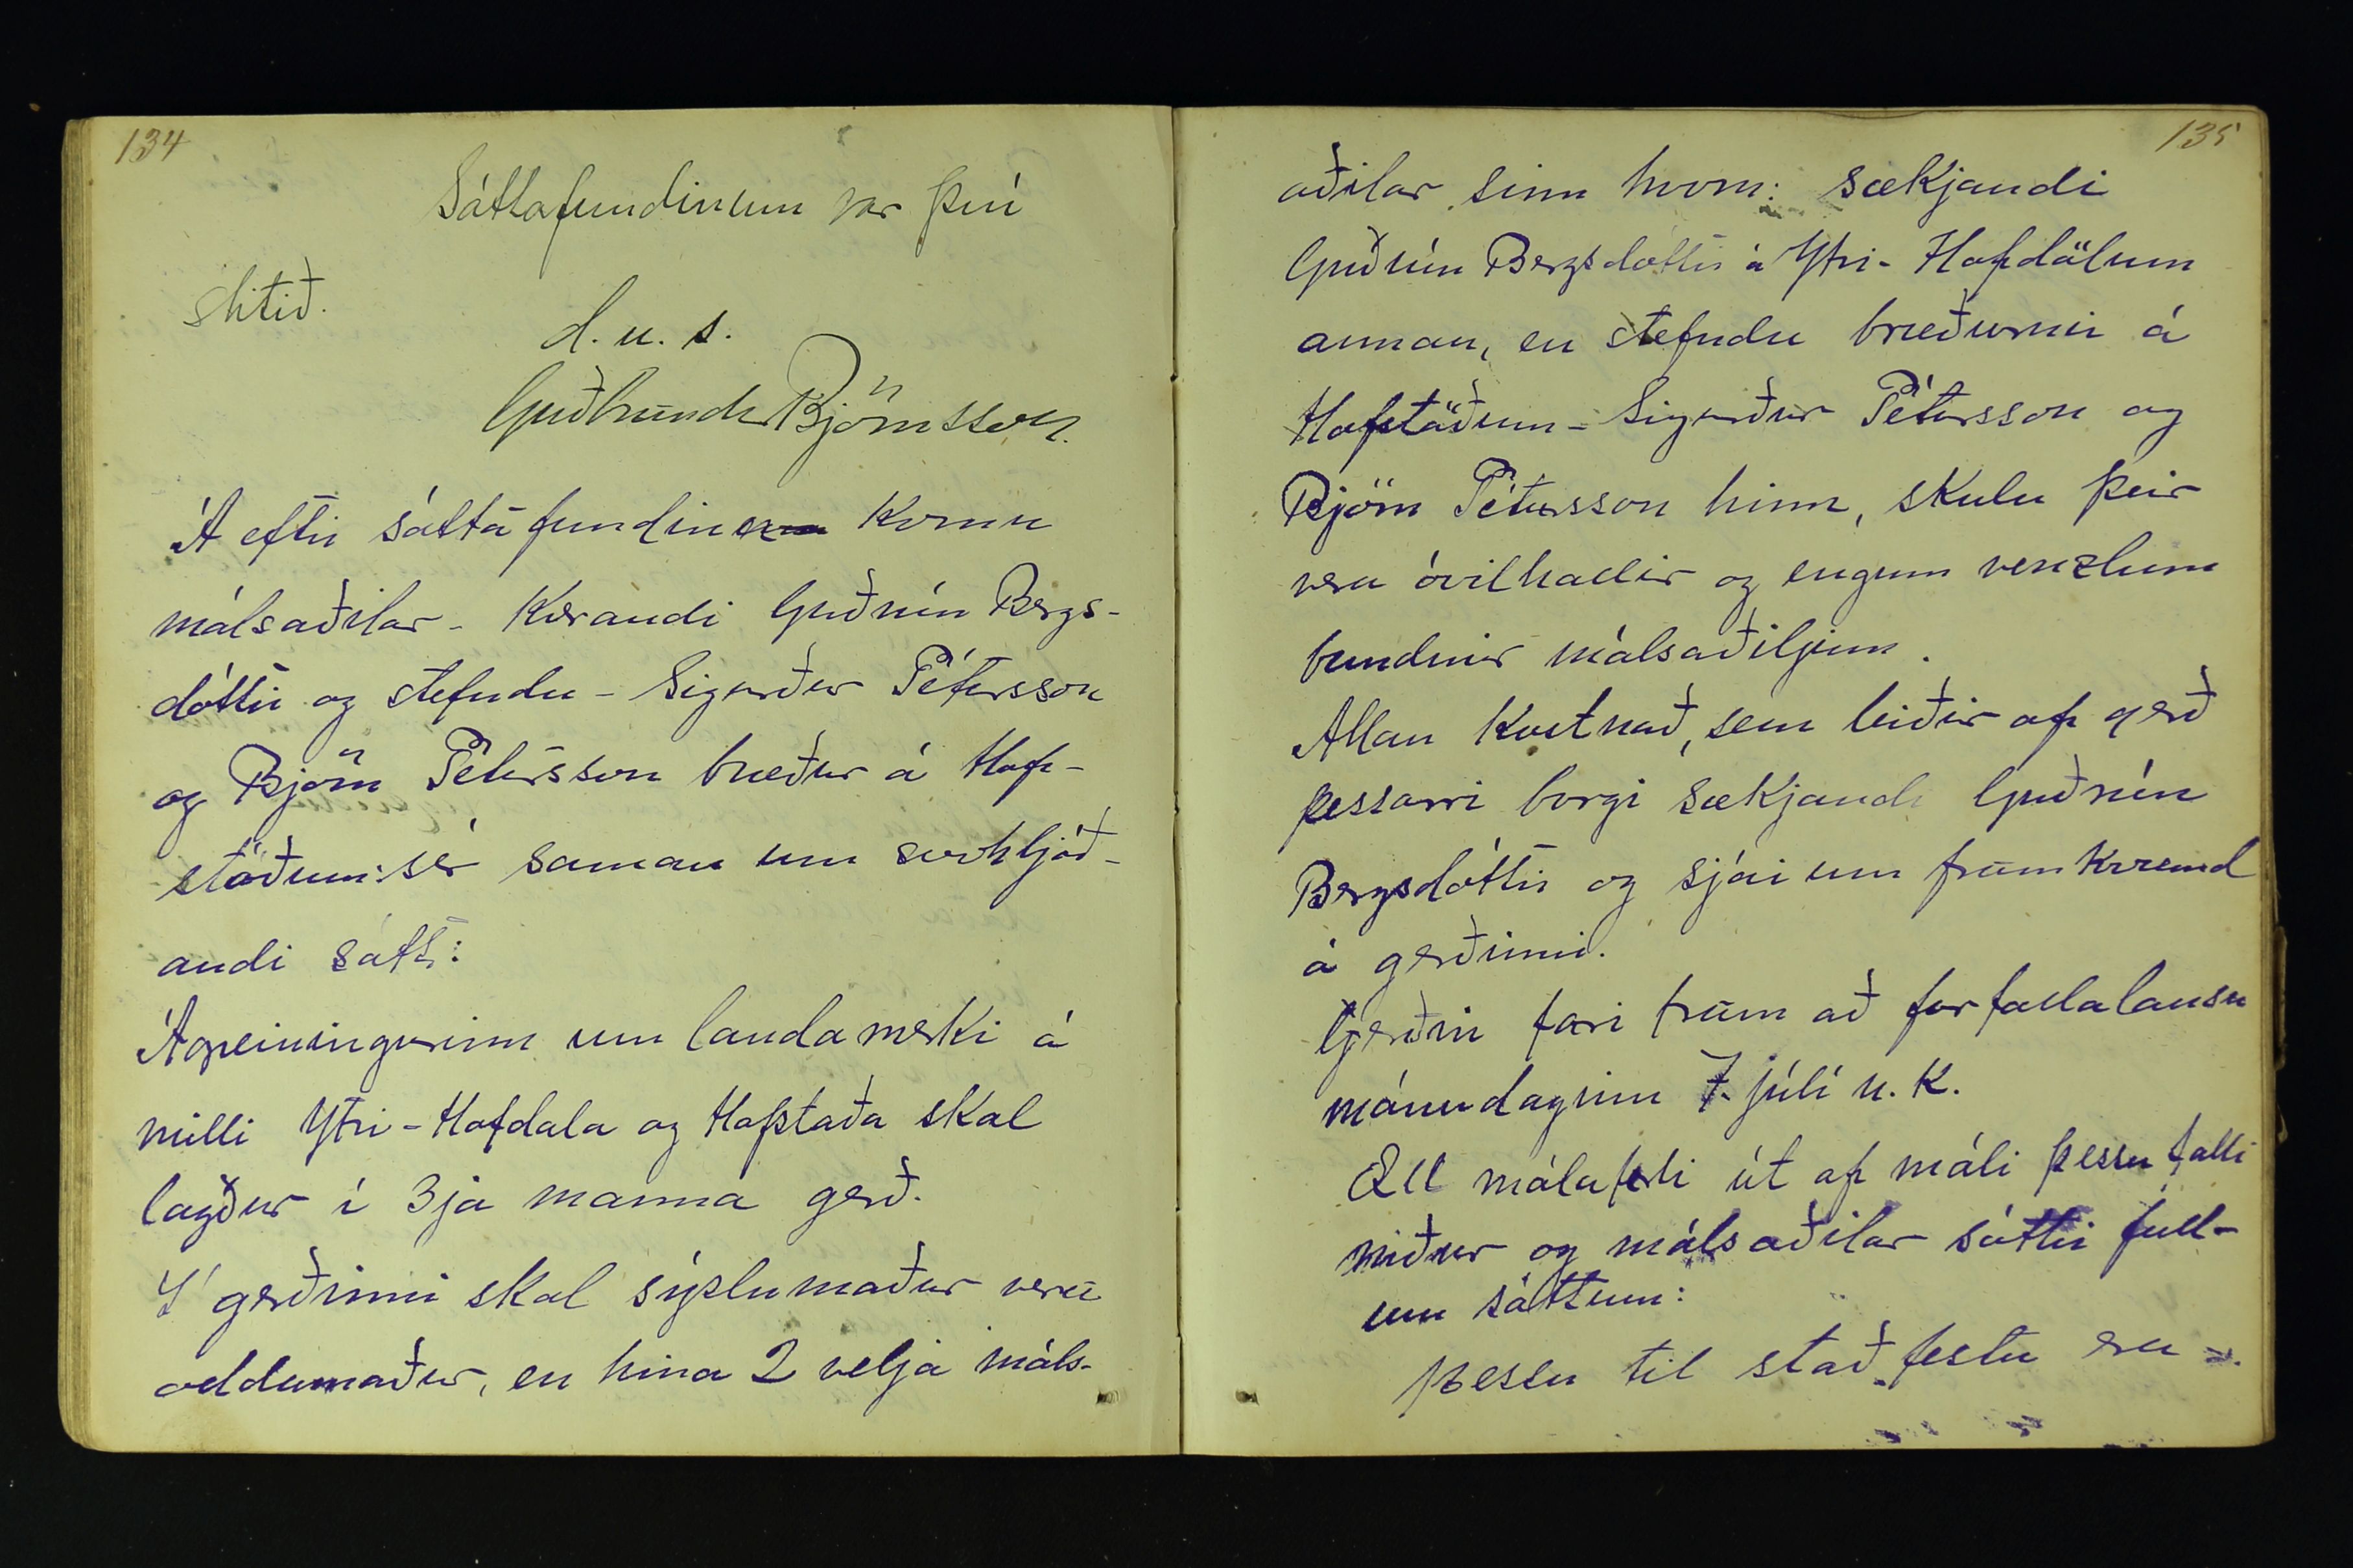 134
Sáttafundinum var því
slitið.
d. u. s.
Guðbrandur Björnsson
Á eftir sáttafundin komu
málsaðilar - Kærandi Guðrún Bergs-
dóttir og stefndu - Sigurður Pétursson
og Björn Pétursson bræður á Hof-
stöðum: sér saman um svohljóð-
andi sátt:
Ágreiningurinn um landamerki á
milli Ytri-Hofdala og Hofstaða skal
lagður í 3ja manna gerð.
Í gerðinni skal sýslumaður vera
oddamaður, en hina 2 velja máls-
135
aðilar sinn hvorn: sækjandi
Guðrún Bergsdóttir á Ytri-Hofdölum
annan, en stefndu bræðurnir á
Hofstöðum - Sigurður Pétursson og
Björn Pétursson hinn, skulu þeir
vera óvilhallir og engum venzlum
bundnir málsaðiljum.
Allan kostnað, sem leiðir af gerð
þessarri borgi sækjandi Guðrún
Bergsdóttir og sjái um framkvæmd
á gerðinni.
Gerðin fari fram að forfallalausu
mánudaginn 7. júlí n.k.
Öll málaferli út af máli þessu falli
niður og málsaðilar sáttir full-
um sáttum:
Þessu til staðfestu eru